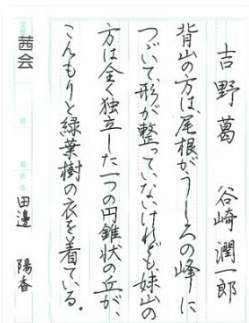 吉野葛　谷崎潤一郎
背山の方は、尾根がうしろの峰に
つゞいて、形が整っていないけれども、妹山の
方は全く独立した一つの円錐状の丘が、
こんもりと緑葉樹の衣を着ている。
茜会
田邉　陽香